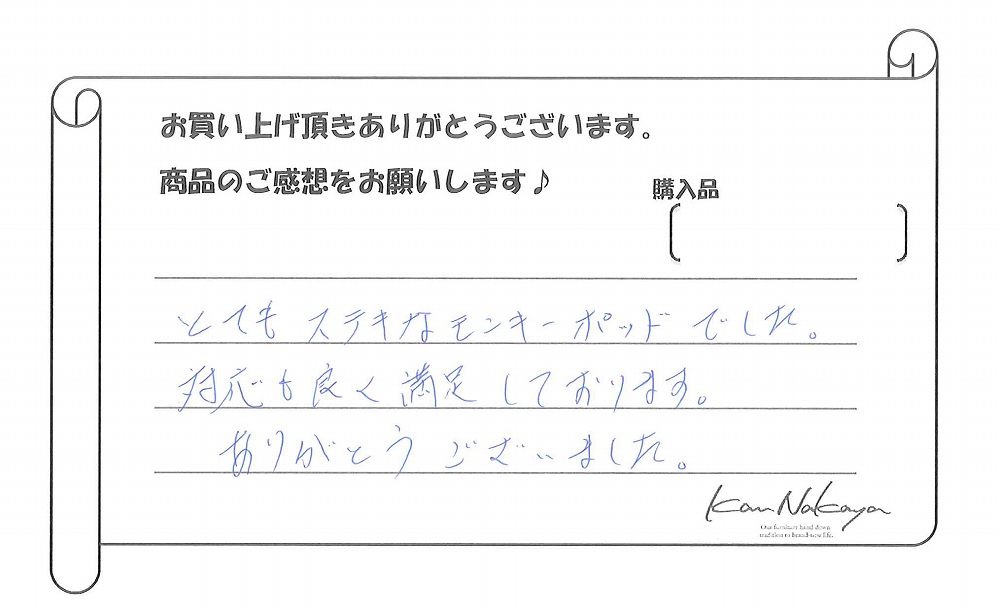 お買い上げ頂きありがとうございます。
商品のご感想をお願いします♪
購入品
とても ステキな モンキーポッド でした。
対応も良く 満足 しております。
ありがとう ございました。
Kan Nakaya
Our furniture hand down
tradition to brand-new life.